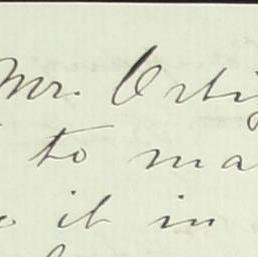 Mr. Orti
to ma
it in